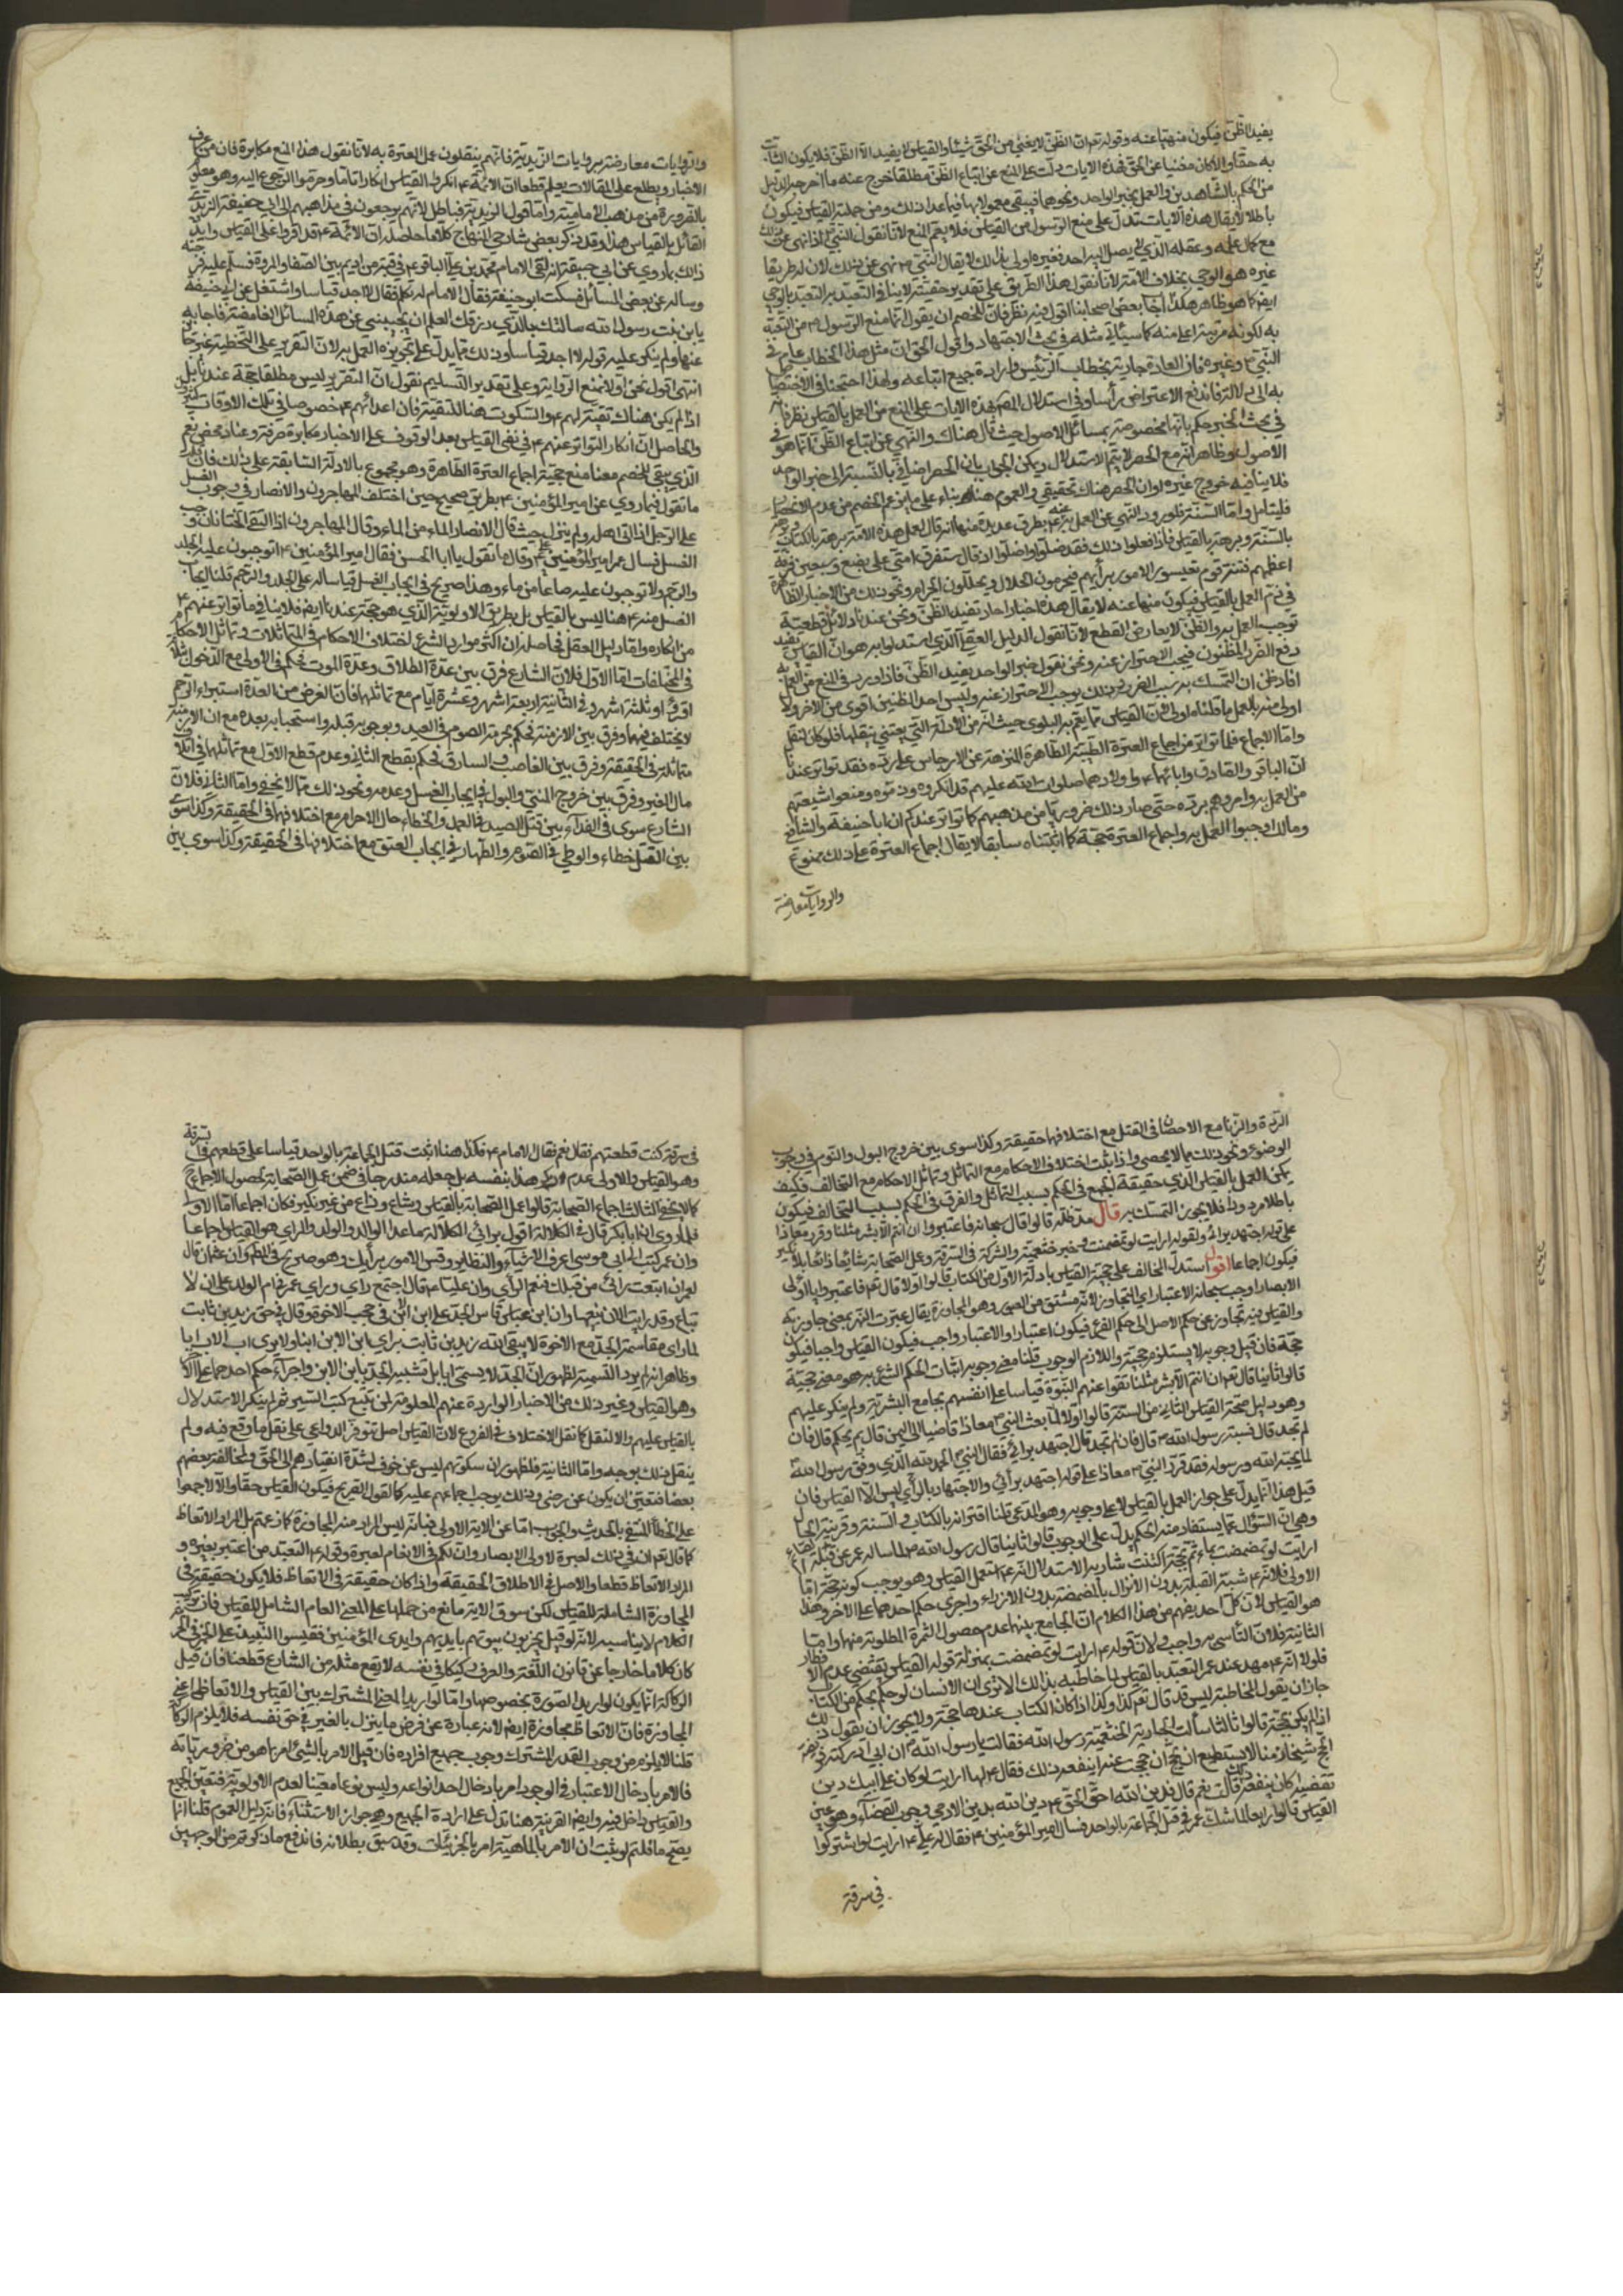 يفيد الظن فيكون منهيا عنه وقوله تع ان الظن لا يغني من الحق شيئا والقياس لا يفيد الا الظن فلا يكون الثابت
به حقا والا لكان مغنيا عن الحق فهذه الايات دلت على المنع عن اتباع الظن مطلقا خرج عنه ما اخرجه الدليل
من الحكم بالشاهدين والعمل بخبر الواحد ونحوها فيبقى معمولا بها فيما عدا ذلك ومن جملته القياس فيكون
باطلا لا يقال هذه الايات تدل على منع الرسول من القياس فلا يعم المنع لانا نقول النبي اذا نهي عن ذلك
مع كمال علمه وعقله الذي لا يصل اليه احد فغيره اولى بذلك لا يقال النبي نهي عن ذلك لان له طريقا
غيره هو الوحي بخلاف الامة لانا نقول هذا الطريق على تقدير حقيته لا ينافي التعبد به التعبد بالوحي
ايضا كما هو ظاهر هكذا اجاب بعض اصحابنا اقول فيه نظر فان للخصم ان يقول انما منع الرسول من التعبد
به لكونه مرتبة اعلى منه كما سيأتي مثله في بحث الاجتهاد واقول الحق ان مثل هذا الخطاب عام في
النبي وغيره فان العادة جارية بخطاب الرئيس وارادة جميع اتباعه ولهذا احتجنا في الاختصاص
به الى دلالة فاندفع الاعتراض رأسا وفي استدلال المص بهذه الايات على المنع من العمل بالقياس نظر فانه
في بحث الخبر حكم بانها مخصوصة بمسائل الاصول حيث قال هناك والنهي عن اتباع الظن انما هو في
الاصول وظاهر انه مع الحصر لا يتم الاستدلال ويمكن الجواب بان الحصر اضافي بالنسبة الى خبر الواحد
فلا ينافيه خروج غيره او ان الحصر هناك تحقيقي والعموم هنا بناء على ما يزعم الخصم من عدم الانحصار
فليتامل واما السنة فلورود النهي عن العمل به بطرق عديدة منها انه قال تعمل هذه الامة برهة بالكتاب وبرهة
بالسنة وبرهة بالقياس فاذا فعلوا ذلك فقد ضلوا واضلوا وقال ستفرق امتي على بضع وسبعين فرقة
اعظمهم فتنة قوم يقيسون الامور برأيهم فيحرمون الحلال ويحللون الحرام ونحو ذلك من الاخبار الظاهرة
في ذم العمل بالقياس فيكون منها عنه لا يقال هذه اخبار احاد تفيد الظن ونحن عندنا دلائل قطعية
توجب العمل به والظن لا يعارض القطع لانا نقول الدليل العقلي الذي استدلوا به هو ان القياس يفيد
دفع الضرر المظنون فيجب الاحتراز عنه ونحن نقول خبر الواحد يفيد الظن فاذا ورد في المنع عن العمل به
افاد ظن ان التمسك به سبب الضرر وذلك يوجب الاحتراز عنه وليس احد الظنين اقوى من الاخر ولا
اولى منه بالعمل ما قلناه اولى لان القياس مما يعم به البلوى حيث انه من الادلة التي يعتني بنقلها فلو كان لنقل
واما الاجماع فلما تواتر من اجماع العترة الطيبة الطاهرة المنزهة عن الارجاس على رده فقد تواتر عندنا
ان الباقر والصادق وابائهما واولادهما صلوات الله عليهم قد انكروه وذموه ومنعوا شيعتهم
من العمل به وامروهم برده حتى صار ذلك ضروريا من مذهبهم كما تواتر عندكم ان ابا حنيفة والشافعي
ومالك اوجبوا العمل به واجماع العترة حجة كما اثبتناه سابقا لا يقال اجماع العترة على ذلك ممنوع
والروايات معارضة
والروايات معارضة بروايات الزيدية فانهم ينقلون عمل العترة به لانا نقول هذا المنع مكابرة فان من عرف
الاخبار ويطلع على المقالات يعلم قطعا ان الائمة انكروا القياس انكارا تاما وحرموا الرجوع اليه وهو معلوم
بالضرورة من مذهب الامامية واما قول الزيدية فباطل لانهم يرجعون في مذاهبهم الى ابي حنيفة
القائل بالقياس هذا وقد ذكر بعض شارحي المنهاج كلاما حاصله ان الائمة قد اقروا على القياس وايد
ذلك بما روي عن ابي حنيفة انه لقي الامام محمد بن علي الباقر في قبة من اديم بين الصفا والمروة فسلم عليه
وساله عن بعض المسائل فسكت ابو حنيفة فقال الامام له تكلم فقال لا اجد قياسا واشتغل عن ابي حنيفة
يابن بنت رسول الله سالتك بالذي رزقك العلم ان تجيبني عن هذه المسائل الغامضة فاجابه
عنها ولم ينكر عليه قوله لا اجد قياسا وذلك مما يدل على تجويزه العمل به لان التقرير على التخطية غير جائز
انتهى اقول نحن اولا نمنع الرواية وعلى تقدير التسليم نقول ان التقرير ليس مطلقا حجة عندنا بل
اذا لم يكن هناك تقية لهم والسكوت هنا للتقية فان اعدائهم خصوصا في تلك الاوقات
والحاصل ان انكار التواتر عنهم في نفي القياس بعد الوقوف على الاخبار مكابرة صرفة وعناد محض نعم
الذي يبقى للخصم معنا منع حجية اجماع العترة الطاهرة وهو مجموع بالادلة السابقة على ذلك فان
ما تقول فيما روي عن امير المؤمنين بطريق صحيح حين اختلف المهاجرون والانصار في وجوب الغسل
على الرجل اذا اتى اهله ولم ينزل حيث قال الانصار الماء من الماء وقال المهاجرون اذا التقى الختانان وجب
الغسل فسال عمر امير المؤمنين وقال ما تقول يا ابا الحسن فقال امير المؤمنين اتوجبون عليه الجلد
والرجم ولا توجبون عليه صاعا من ماء وهذا صريح في ايجاب الغسل قياسا له على الجلد والرجم قلنا ايجاب
الغسل منه هنا ليس بالقياس بل بطريق الاولوية الذي هو حجة عندنا ايضا فلا ينافي ما تواتر عنهم
من انكاره واما دليل العقل فحاصله ان اكثر موارد الشرع اختلاف الاحكام في المتماثلات وتماثل الاحكام
في المختلفات اما الاول فلان الشارع فرق بين عدة الطلاق وعدة الموت فحكم في الاولى مع الدخول بثلاثة
اقراء او ثلثة اشهر وفي الثانية اربعة اشهر وعشرة ايام مع تماثلهما فان الغرض من العدة استبراء الرحم
لا يختلف فيهما وفرق بين الازمنة فحكم بحرمة الصوم في العيد وبوجوبه قبله واستحبابه بعده مع ان الازمنة
متماثلة في الحقيقة وفرق بين الغاصب والسارق فحكم بقطع الثاني وعدم قطع الاول مع تماثلهما في اتلاف
مال الغير وفرق بين خروج المني والبول في ايجاب الغسل وعدمه ونحو ذلك مما لا يحصى واما الثاني فلان
الشارع سوى في الفداء بين قتل الصيد في العمد والخطاء حال الاحرام مع اختلافهما في الحقيقة وكذا سوى
بين القتل خطاء والوطي في الصوم والظهار في ايجاب العتق مع اختلافها في الحقيقة وكذا سوى بين
الردة والزنا مع الاحصان في القتل مع اختلافهما حقيقة وكذا سوى بين خروج البول والنوم في وجوب
الوضوء ونحو ذلك مما لا يحصى واذا ثبت اختلاف الاحكام مع التماثل وتماثل الاحكام مع التخالف فكيف
يمكن العمل بالقياس الذي حقيقة الجمع في الحكم بسبب التماثل والفرق في الحكم بسبب التخالف فيكون
باطلا مردودا فلا يجوز التمسك به قال مد ظله قالوا قال سبحانه فاعتبروا وان انتم الا بشر مثلنا وقرر معاذا
على قوله اجتهد برائي ولقوله ارايت لو تمضمضت وخبر خثعمية والشركة في السرقة وعمل الصحابة شائعا ذائعا بلا نكير
فيكون اجماعا اقول استدل المخالف على حجية القياس بادلة الاول من الكتاب قالوا اولا قال تع فاعتبروا يا اولي
الابصار اوجب سبحانه الاعتبار اي التجاوز لانه مشتق من العبور وهو المجاوزة يقال عبرت النهر بمعنى جاوزته
والقياس فيه تجاوز عن حكم الاصل الى حكم الفرع فيكون اعتبارا والاعتبار واجب فيكون القياس واجبا فيكون
حجة فان قيل وجوبه لا يستلزم حجيته واللازم الوجوب قلنا معنى وجوبه اثبات الحكم الشرعي به هو معنى حجيته
قالوا ثانيا قال تع ان انتم الا بشر مثلنا نفوا عنهم النبوة قياسا على انفسهم بجامع البشرية ولم ينكر عليهم
وهو دليل صحة القياس الثاني من السنة قالوا اولا لما بعث النبي معاذا قاضيا الى اليمن قال بم تحكم قال فان
لم تجد قال فبسنة رسول الله قال فان لم تجد قال اجتهد برائي فقال النبي الحمد لله الذي وفق رسول
لما يحبه الله ورسوله فقد قرر النبي معاذا على قوله اجتهد برائي والاجتهاد بالرأي ليس الا القياس فان
قيل هذا انما يدل على جواز العمل بالقياس لا على وجوبه وهو المدعى قلنا اقترانه بالكتاب والسنة وقرينة الحال
وهي ان السؤال عما يستفاد منه الحكم يدل على الوجوب قالوا ثانيا قال رسول الله لما ساله عمر عن قبلة
ارايت لو تمضمضت بماء ثم مججته اكنت شاربه الاستدلال انه استعمل القياس وهو يوجب كونه حجة اما
الاولى فلانه شبه القبلة بدون الانزال بالمضمضة بدون الازدراد واجرى حكم احدهما على الاخر وهذا
هو القياس لان كل احد يفهم من هذا الكلام ان الجامع بينهما عدم حصول الثمرة المطلوبة منهما واما
الثانية فلان التأسي به واجب ولان قوله ارايت لو تمضمضت بمنزلة قوله القياس يقتضي عدم الافطار
فلولا انه مهد عند عمر التعبد بالقياس لما خاطبه بذلك الا ترى ان الانسان لو حكم بحكم من الكتاب
جاز ان يقول للمخاطبة اليس قد قال تع كذا وكذا اذا كان الكتاب عندها حجة ولا يجوز ان يقول ذلك
اذا لم يكن حجة قالوا ثالثا سألت الجارية الخثعمية رسول الله فقالت يا رسول الله ان ابي ادركته فريضة
الحج شيخا زمنا لا يستطيع ان يحج ان حججت عنه اينفعه ذلك فقال لها ارايت لو كان على ابيك دين
تقضينه اكان ينفعه ذلك قالت نعم قال فدين الله احق الحق دين الله بدين الادمي في وجوب القضاء وهو عين
القياس قالوا رابعا لما شك عمر في قتل الجماعة بالواحد فسال امير المؤمنين فقال له علي ارايت لو اشتركوا
في سرقة
في سرقة كنت قطعتهم فقال نعم فقال الامام فكذا هنا اثبت قتل الجماعة بالواحد قياسا على قطعهم في سرقة
وهو القياس والاولى عدم ذكر هذا بنفسه بل جعله مندرجا في ضمن عمل الصحابة بحصول الاجماع
كما لا يخفى الثالث اجماع الصحابة قالوا عمل الصحابة بالقياس وشاع وذاع من غير نكير فكان اجماعا اما الاولى
فلما روي ان ابا بكر قال في الكلالة اقول برائي الكلالة ما عدا الوالد والولد والراي هو القياس اجماعا
وان عمر كتب الى ابي موسى اعرف الاشباه والنظاير وقس الامور برأيك وهو صريح في المط وان عثمان قال
لعمر ان اتبعت رائك من قبلك فنعم الرأي وان عليا قال اجتمع رايي وراي عمر في ام الولد على ان لا
تباع وقد رايت الان بيعها وان ابن عباس قاس الجد على ابن الابن في حجب الاخوة وقال في حق زيد بن ثابت
لما راى مقاسمة الجد مع الاخوة الا يتقي الله زيد بن ثابت يرى ابن الابن ابنا ولا يرى اب الاب ابا
وظاهر انه لم يرد التسمية لظهور ان الجد لا يسمى ابا بل تشبيه الجد بابن الابن واجراء حكم احدهما على الاخر
وهو القياس وغير ذلك من الاخبار الواردة عنهم المعلومة لمن تتبع كتب السير ثم لم ينكر الاستدلال
بالقياس عليهم والا لنقل كما نقل الاختلاف في الفروع لان القياس اصل تتوفر الدواعي على نقل ما وقع فيه ولم
ينقل ذلك بوجه واما الثانية فلظهور ان سكوتهم ليس عن خوف لشدة انقيادهم الى الحق ومخالفة بعضهم
بعضا فتعين ان يكون عن رضى وذلك يوجب اجماعهم عليه كالقول الصريح فيكون القياس حقا والا لاجمعوا
على الخطأ المنفي بالحديث والجواب اما عن الاية الاولى فبانه ليس المراد منه المجاوزة كما زعمتم بل المراد الاتعاظ
كما قال تع ان في ذلك لعبرة لاولي الابصار وان لكم في الانعام لعبرة وقوله السعيد من اعتبر بغيره و
المراد الاتعاظ قطعا والاصل في الاطلاق الحقيقة واذا كان حقيقة في الاتعاظ فلا يكون حقيقة في
المجاوزة الشاملة للقياس لكن سوق الاية مانع من حملها على المعنى العام الشامل للقياس فان تركيب
الكلام لا يناسبه لانه لو قيل يخربون بيوتهم بايديهم وايدي المؤمنين فقيسوا النبيذ على الخمر في الحرمة
كان كلاما خارجا عن قانون اللغة والعرف ركيكا في نفسه لا يقع مثله من الشارع قطعا فان قيل
الركاكة انما يكون لو اريد الصورة بخصوصها واما لو اريد المعنى المشترك بين القياس والاتعاظ اعني
المجاوزة فان الاتعاظ مجاوزة ايضا لانه عبارة عن فرض ما ينزل بالغير في حق نفسه فلا يلزم الركاكة
قلنا لا يلزم من وجوب القدر المشترك وجوب جميع افراده فان قيل الامر بالشيء امر بما هو من ضرورياته
فالامر بادخال الاعتبار في الوجود امر بادخال احد انواعه وليس نوعا معينا لعدم الاولوية فتعين الجميع
والقياس داخل فيه وايضا القرينة هنا تدل على ارادة الجميع وهو جواز الاستثناء فانه دليل العموم قلنا انما
يصح ما قلتم لو ثبت ان الامر بالماهية امر بالجزئيات وقد سبق بطلانه فاندفع ما ذكرتم من الوجهين